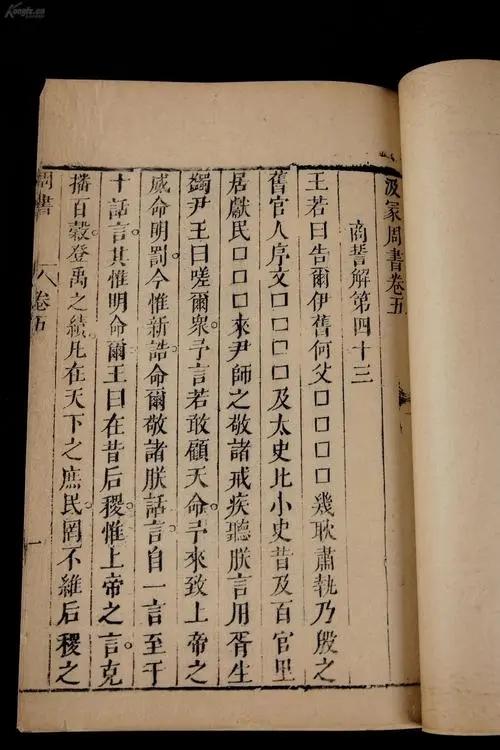 汲冢周書卷五
商誓解第四十三
王若曰告爾伊舊何父□□□□幾耿肅執乃殷之
舊官人序文□□□□及太史比小史昔及百官里
居獻民□□□來尹師之敬諸戒疾聽朕言用胥生
蠲尹王曰嗟爾衆予言若敢顧天命予來致上帝之
威命明罰今惟新誥命爾敬諸朕話言自一言至于
十話言其惟明命爾王曰在昔后稷惟上帝之言克
播百穀登禹之績凡在天下之庶民罔不維后稷之
周書 卷五 一
Kongfz.cn